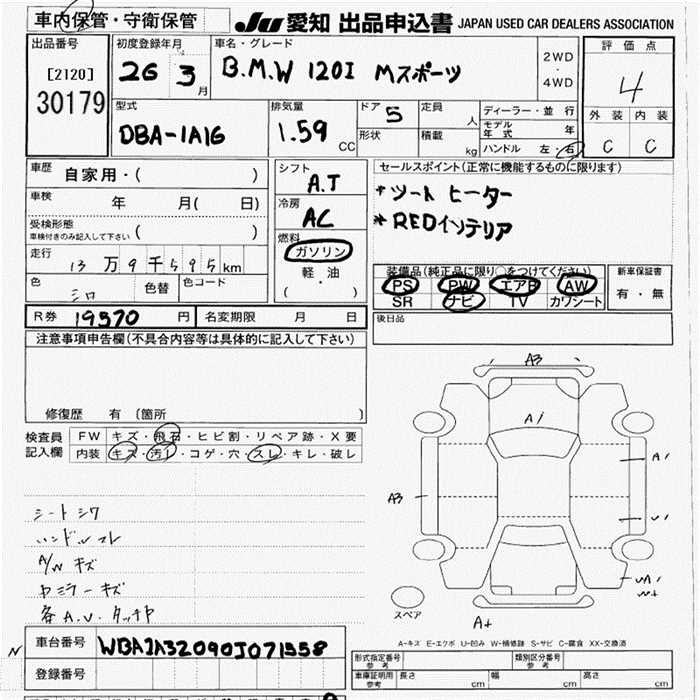 車内保管・守衛保管
JU 愛知 出品申込書 JAPAN USED CAR DEALERS ASSOCIATION
出品番号
[2120]
30179
初度登録年月
26 3月
車名・グレード
B.M.W 120I Mスポーツ
2WD
・
4WD
評価点
4
外装 内装
C C
型式
DBA-1A16
排気量
1.59 CC
ドア 5
形状
定員 人
積載 kg
ディーラー・並行
モデル年式 年
ハンドル 左・右
車歴 自家用・( )
車検 年 月( 日)
受検形態
車検付きのみ記入して下さい ( )
走行 13万9千595km
色 シロ 色替 色コード
シフト
A.T
冷房
AC
燃料
ガソリン
軽・油
( )
セールスポイント(正常に機能するものに限ります)
*シートヒーター
*REDインテリア
装備品(純正品に限り○をつけてください)
PS PW エアB AW
SR ナビ TV カワシート
新車保証書
有・無
後日品
R券 19570 円 名変期限 月 日
注意事項申告欄(不具合内容等は具体的に記入して下さい)
修復歴 有 (箇所 )
検査員
記入欄
FW キズ・飛石・ヒビ割・リペア跡・X要
内装 キズ・汚レ・コゲ・穴・スレ・キレ・破レ
シートシワ
ハンドルスレ
A/W キズ
各A.U.タッチP
A3
A1
A1
A3
U1
UA1
A+
スペア
A-キズ E-エクボ U-凹み W-補修跡 S-サビ C-腐食 XX-交換済
N
車台番号 WBA1A32090J071558
登録番号
形式指定番号
参考
類別区分番号
参考
車庫証明用
参考
長さ cm 幅 cm 高さ cm